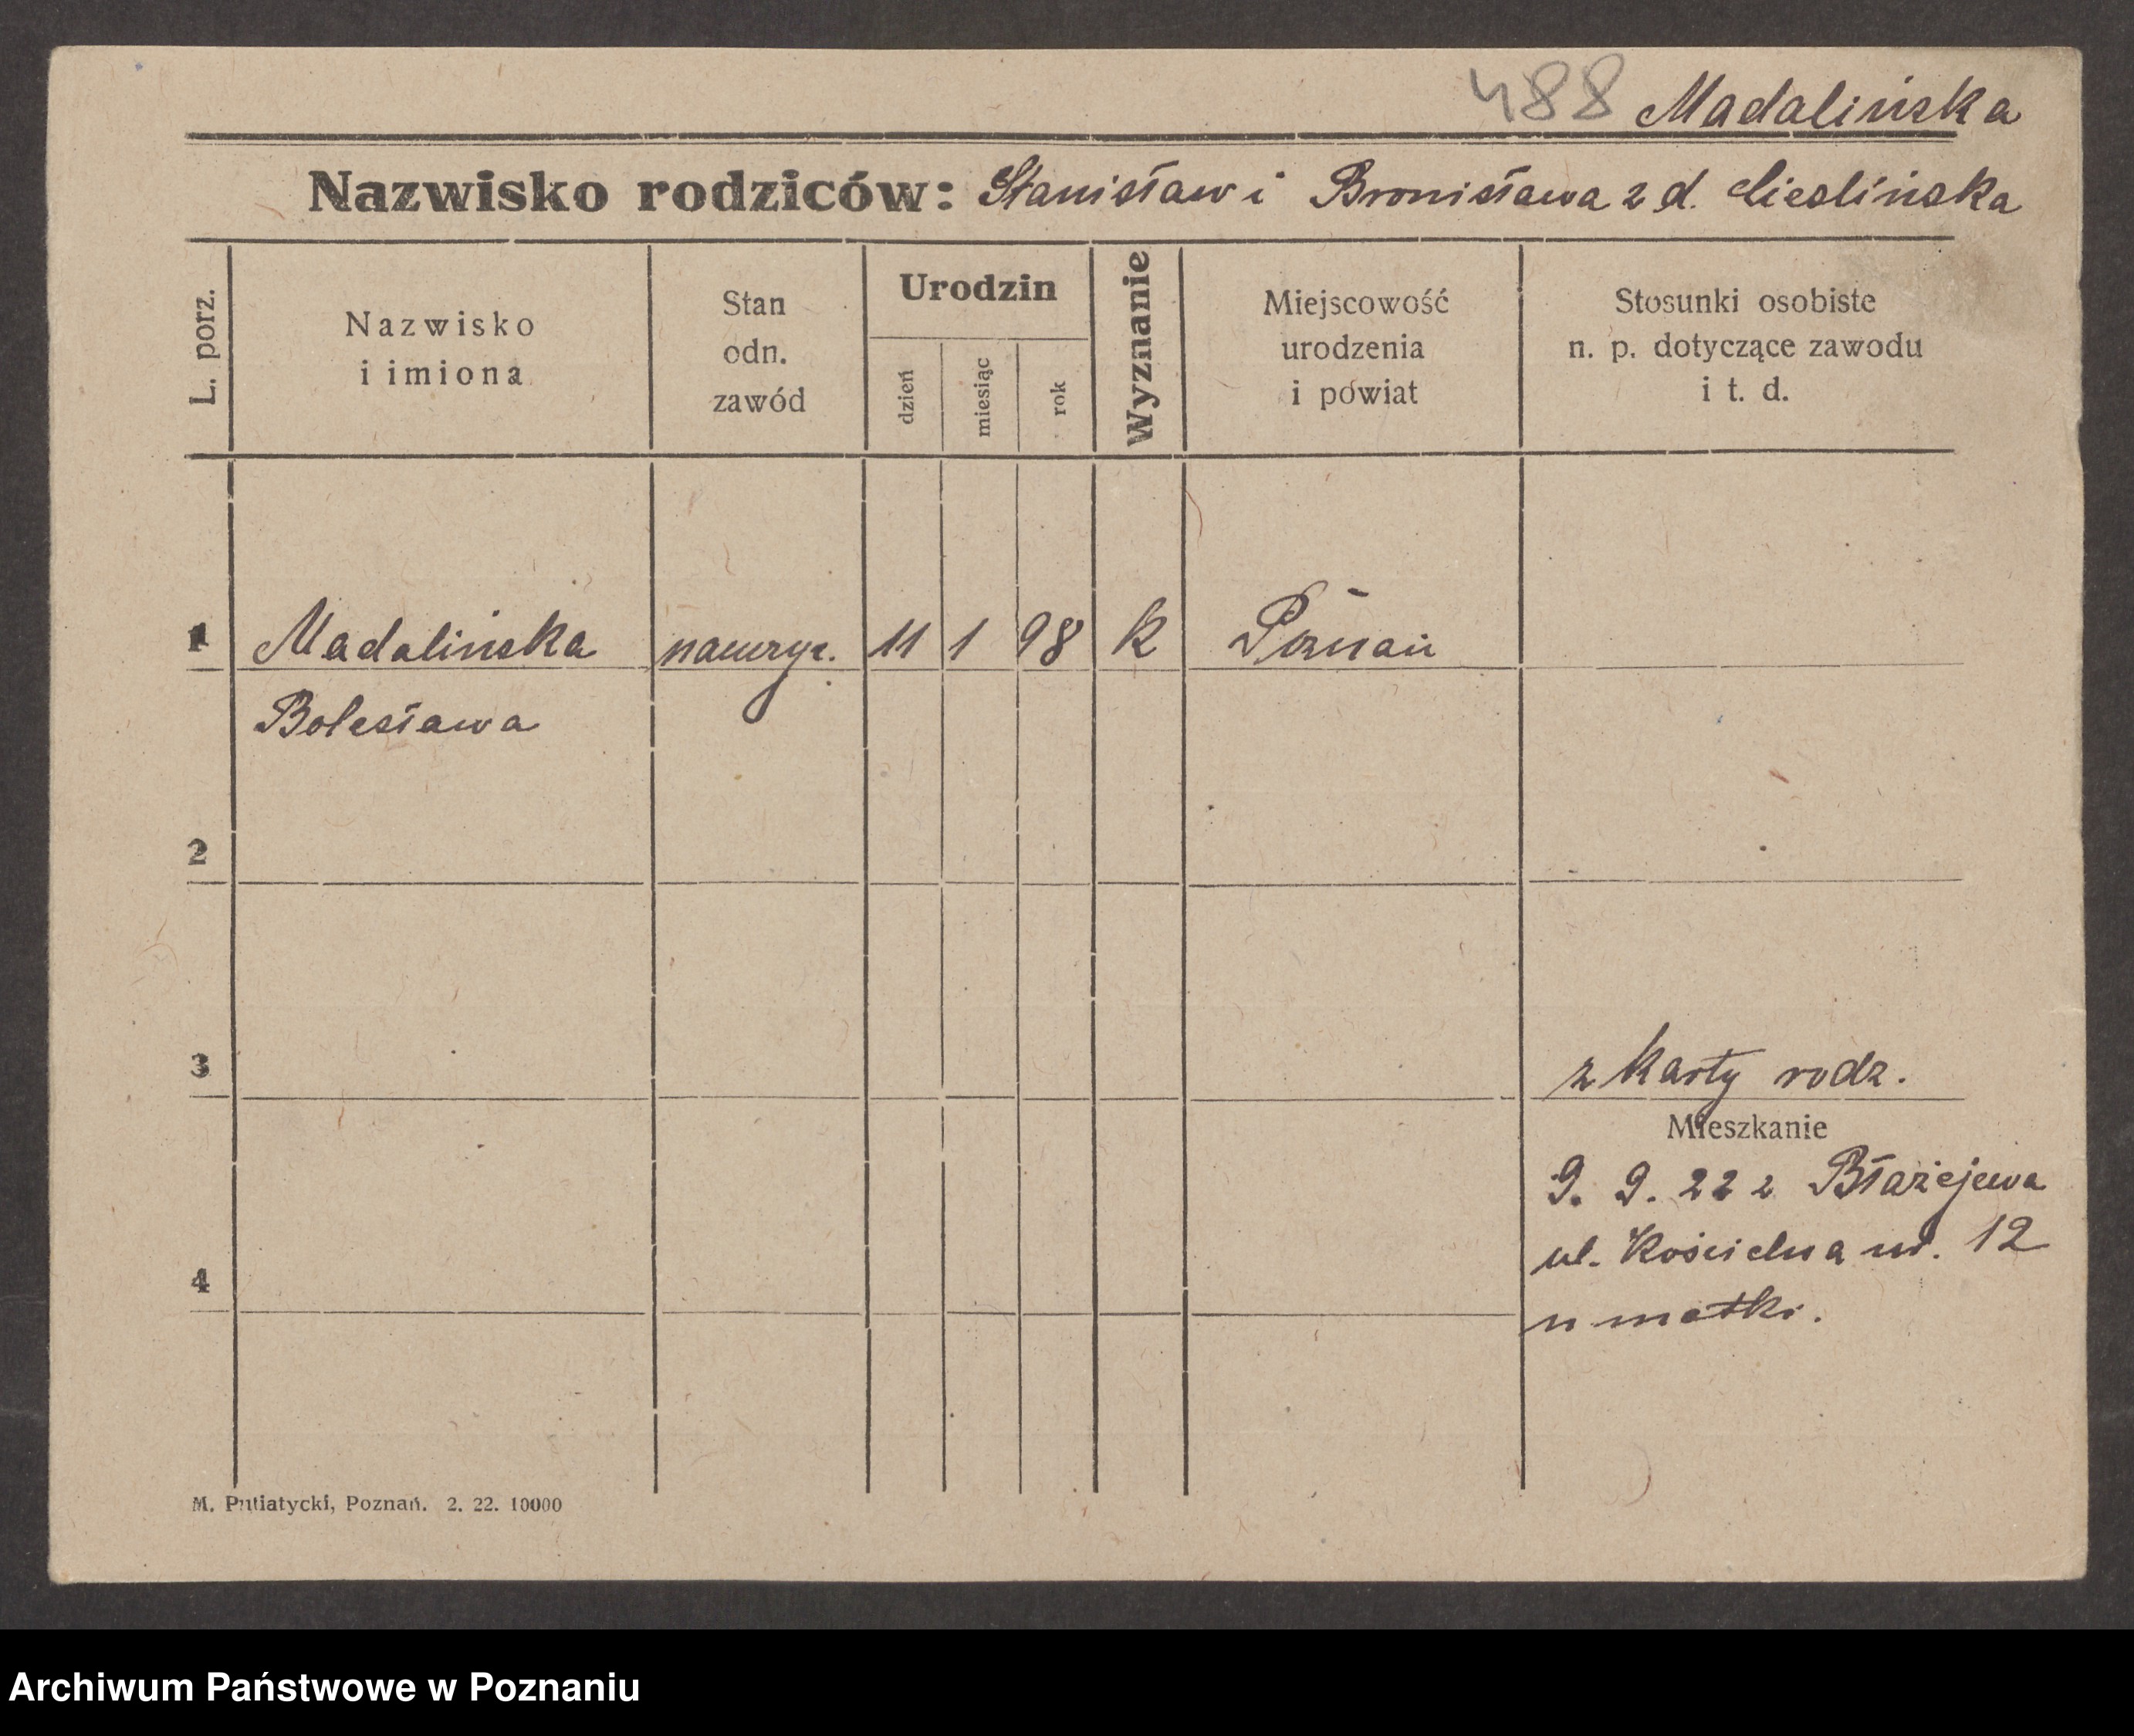 488 Madalińska
Nazwisko rodziców: Stanisław i Bronisława z d. Cieślińska
L. porz.
Nazwisko
i imiona
Stan
odn.
zawód
Urodzin
dzień
miesiąc
rok
Wyznanie
Miejscowość
urodzenia
i powiat
Stosunki osobiste
n. p. dotyczące zawodu
i t. d.
1 Madalińska nauczyc. 11 1 98 k Poznań
Bolesława
2
3
z karty rodz.
Mieszkanie
9. 9. 22 z Błażejewa
ul. Kościelna nr. 12
4
u matki.
M. Putiatycki, Poznań. 2. 22. 10000
Archiwum Państwowe w Poznaniu